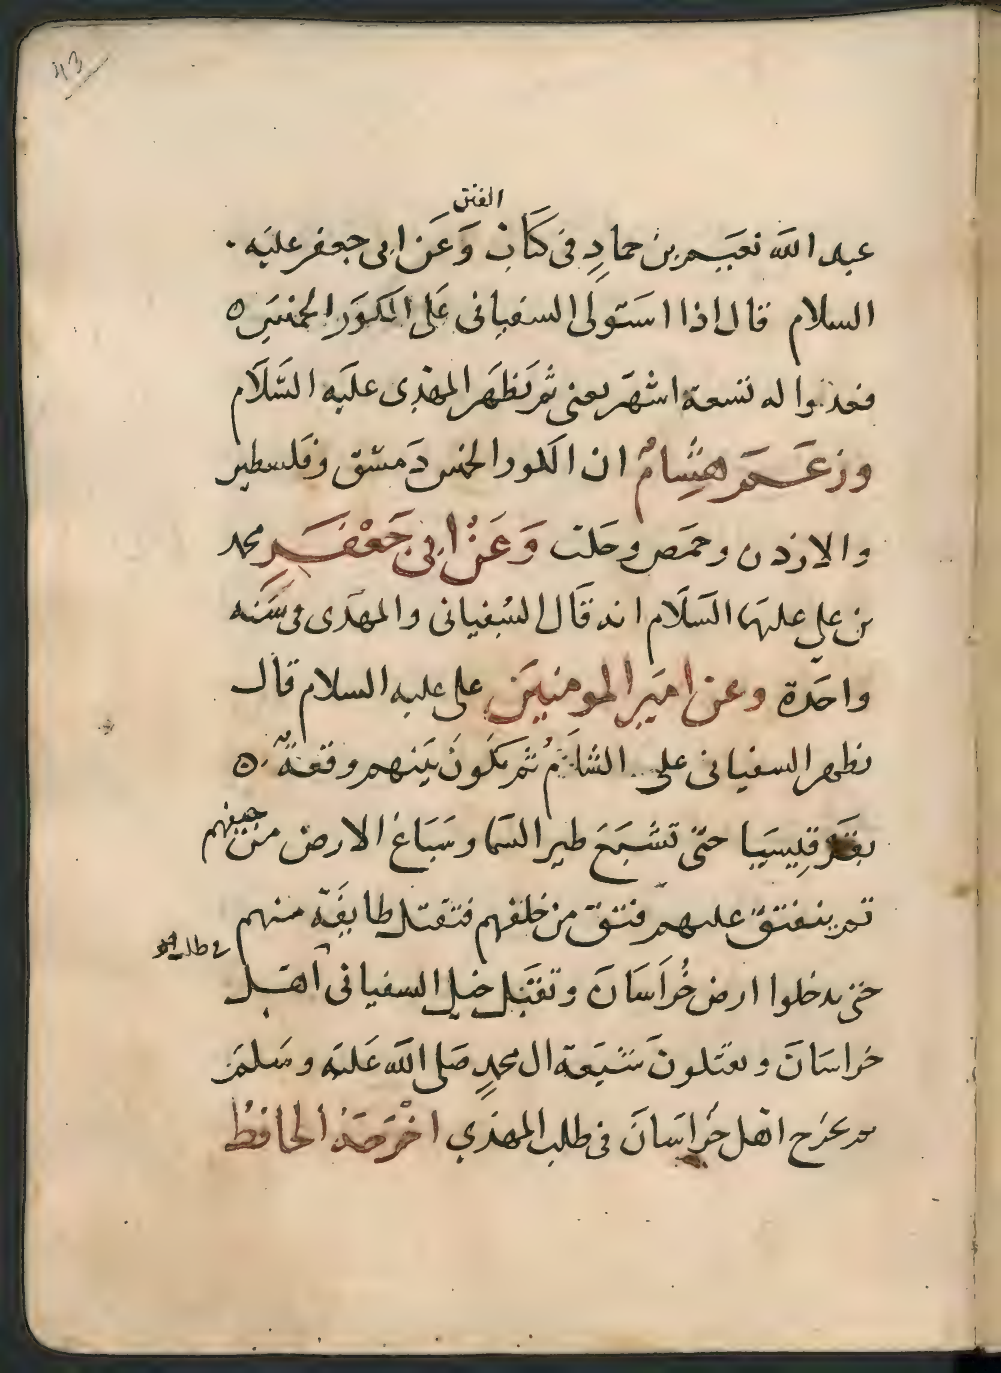 43
الفتن
عبد الله نعيم بن حماد في كتاب وعن ابي جعفر عليه
السلام قال اذا استولى السفياني على الكور الخمس
فعدوا له تسعة اشهر يعني ثم يظهر المهدي عليه السلام
وزعم هشام ان الكور الخمس دمشق وفلسطين
والاردن وحمص وحلب وعن ابي جعفر محمد
بن علي عليهما السلام انه قال السفياني والمهدي في سنه
واحدة وعن امير المومنين علي عليه السلام قال
يظهر السفياني على الشام ثم يكون بينهم وقعة
بقرقيسيا حتى تشبع طير السما وسباع الارض من جيفهم
ثم ينفتق عليهم فتق من خلفهم فتقتل طايفة منهم
حتى يدخلوا ارض خراسان وتقتل خيل السفياني اهل
في طلب
خراسان ويقتلون شيعة ال محمد صلى الله عليه وسلم
ثم يخرج اهل خراسان في طلب المهدي اخرجه الحافظ